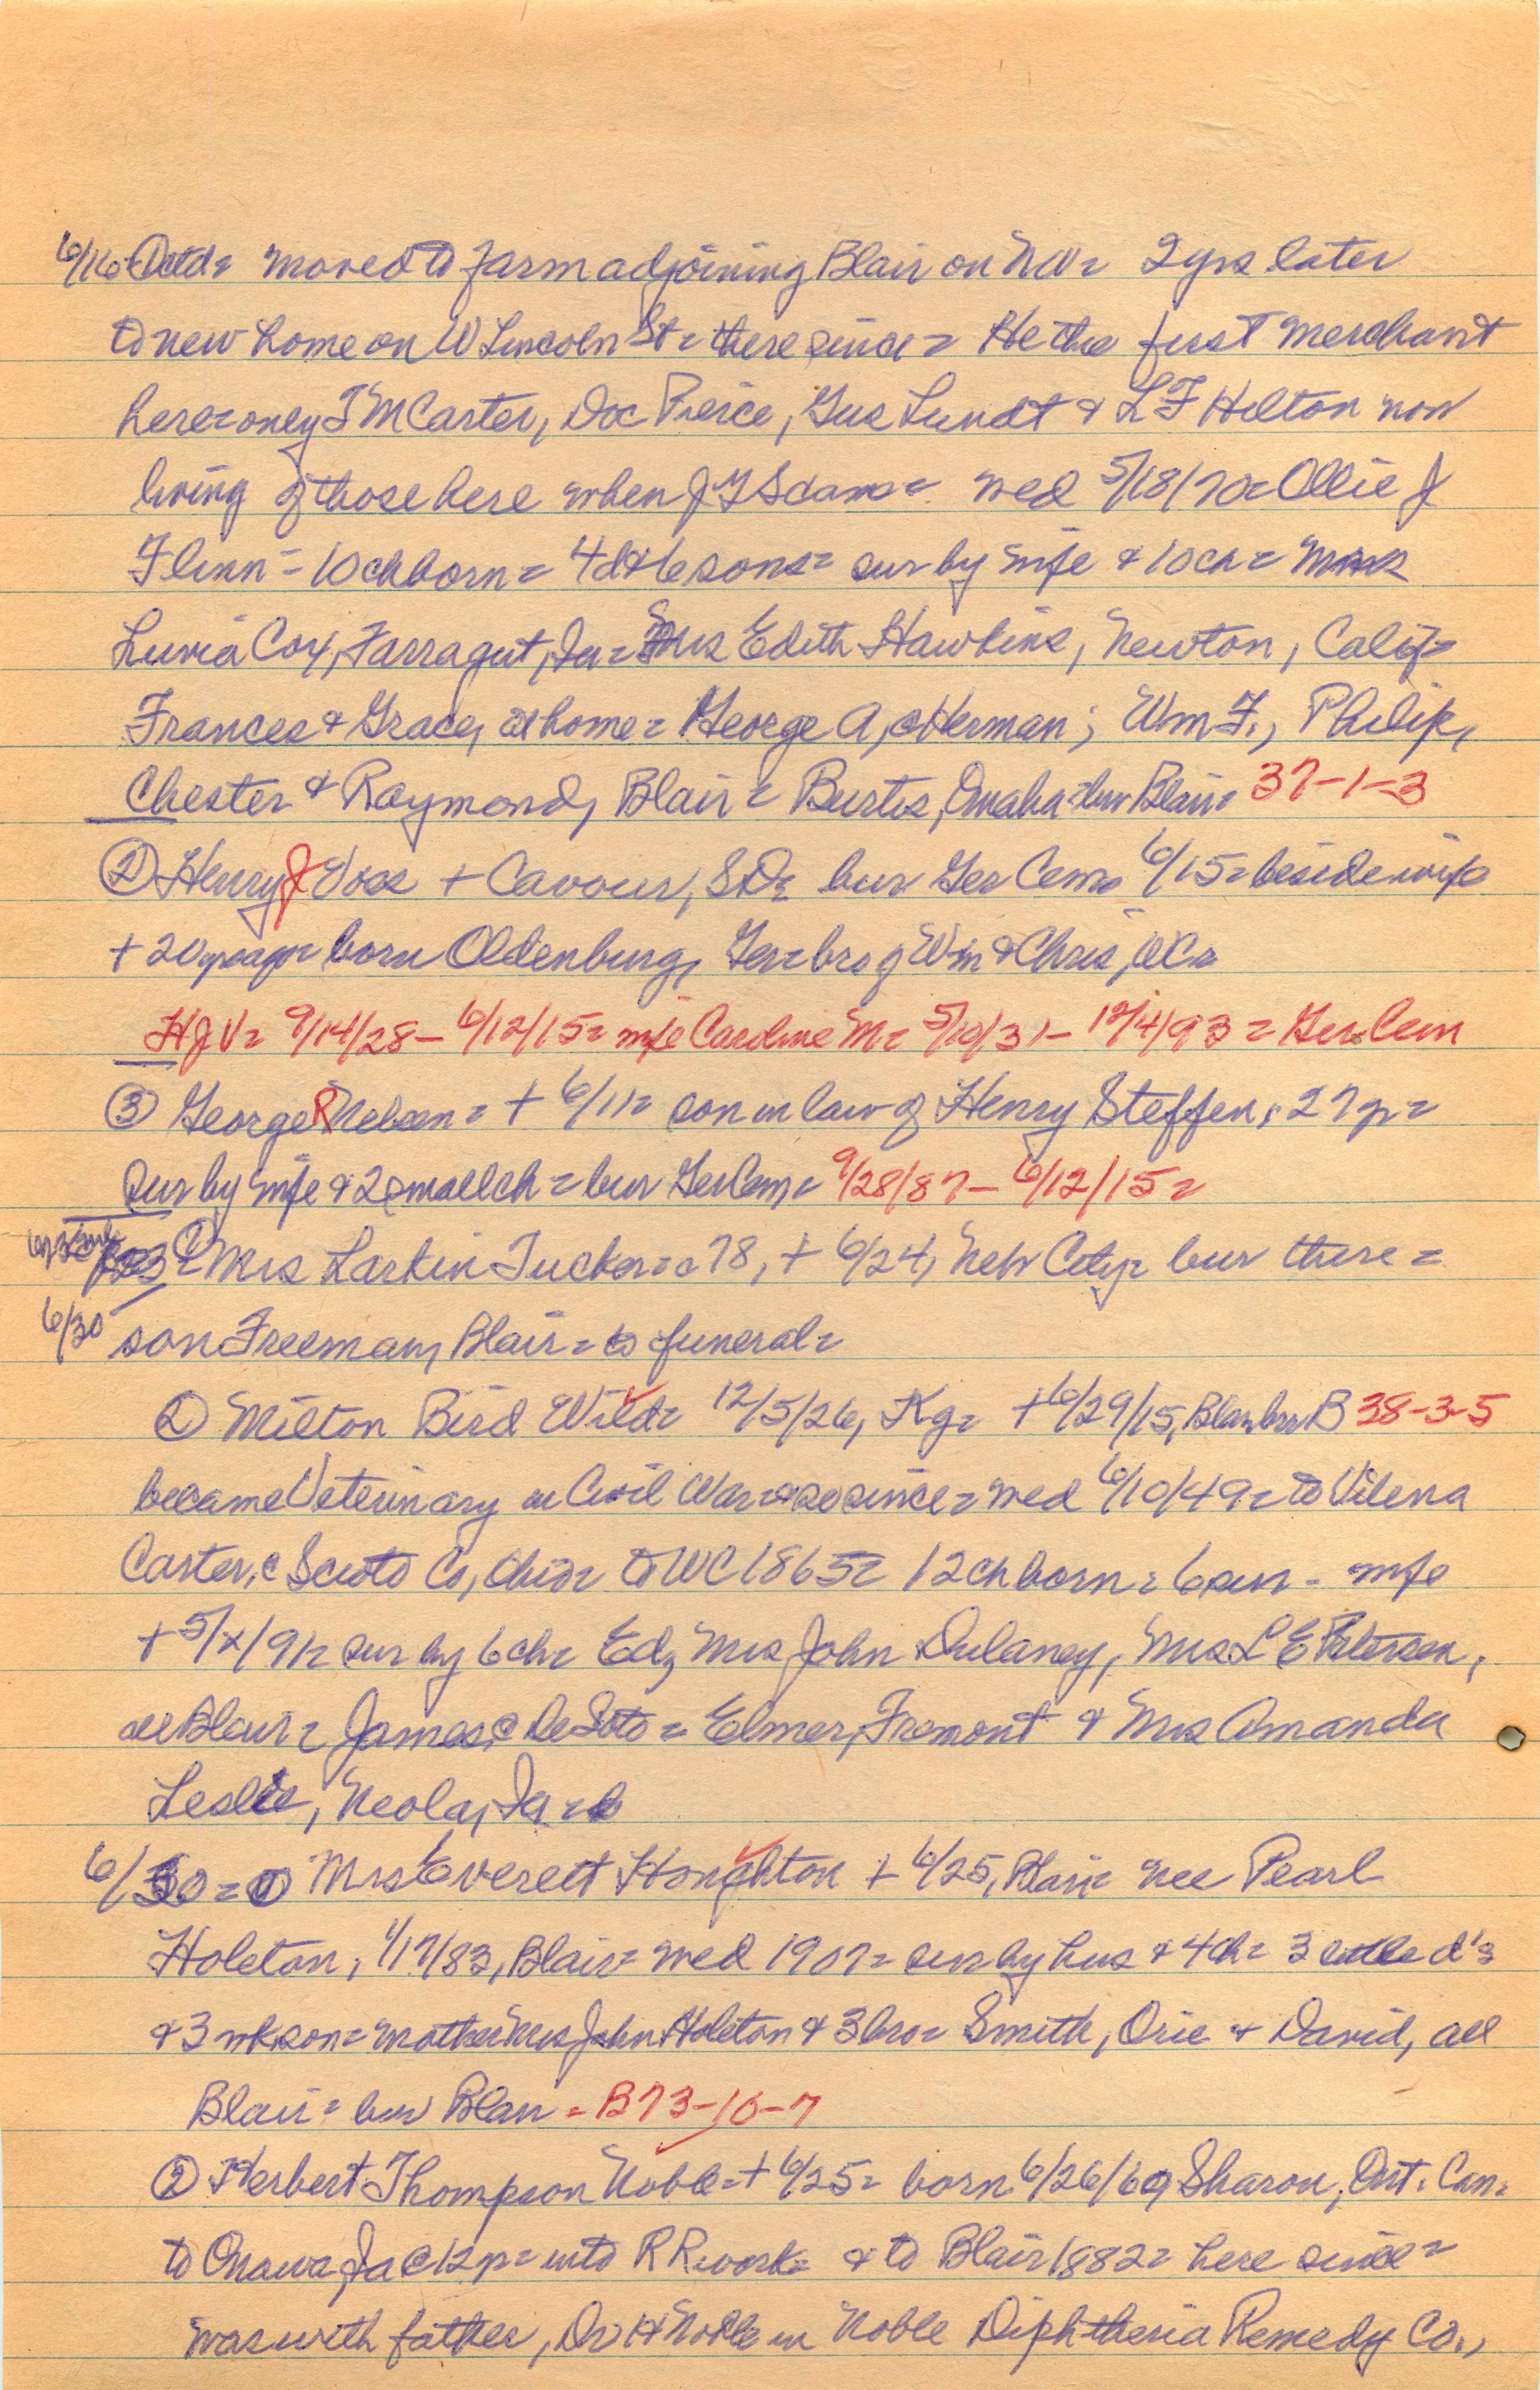 6/16 Contd= moved to farm adjoining Blair on NW= 2 yrs later
to new home on W Lincoln St= there since= He the first merchant
here= only T M Carter, Doc Pierce, Gus Lundt & L F Hilton now
living of those here when J G came= wed 5/18/70= Ollie J
Flinn= 10 ch born= 4d & 6 sons= sur by wife & 10 ch= Mrs
Luvia Cox, Farragut, Ia= Mrs Edith Hawkins, Newton, Calif=
Frances & Grace, at home= George A, Herman; Wm F., Philip,
Chester & Raymond, Blair= Burtis, Omaha= bur Blair= 37-1-3
② Henry J Voss + Cavour, SD= bur Ger Cem 6/15= beside wife
+ 20 yrs ago= born Oldenburg, Ger= bro of Wm & Chris, WC=
HJV= 9/14/28- 6/12/15= wife Caroline M= 5/10/31- 12/4/93= Ger Cem
③ George R Nelsen= + 6/11= son in law of Henry Steffen, 27 yr=
Sur by wife & 2 small ch= bur Ger Cem= 9/28/87- 6/12/15=
① Mrs Larkin Tucker= c 78, + 6/24, Neb City= bur there=
6/30 son Freeman, Blair= to funeral=
② Milton Bird Wild= 12/5/26, Ky= + 6/29/15, Blair, bur B 38-3-5
became Veterinary in Civil War= & so since= wed 6/10/49= to Vilena
Carter, c Scioto Co, Ohio= to WC 1865= 12 ch born= 6 sur- wife
+ 5/x/91= sur by 6 ch= Ed, Mrs John Dulaney, Mrs L E Petersen,
all Blair= James, c DeSoto= Elmer, Fremont & Mrs Amanda
Leslie, Neola, Ia=
6/30= ① Mrs Everett Houghton + 6/25, Blair= nee Pearl
Holeton, 1/17/83, Blair= wed 1907= sur by hus & 4 ch= 3 little d's
& 3 wk son= mother Mrs John Holeton & 3 bro= Smith, Orie & David, all
Blair= bur Blair= B73-10-7
② Herbert Thompson Noble= + 6/25= born 6/26/69 Sharon, Ont. Can=
to Onawa Ia @ 12 yr= into RR work= & to Blair 1882= here since=
was with father, Dr H Noble in Noble Diphtheria Remedy Co.,